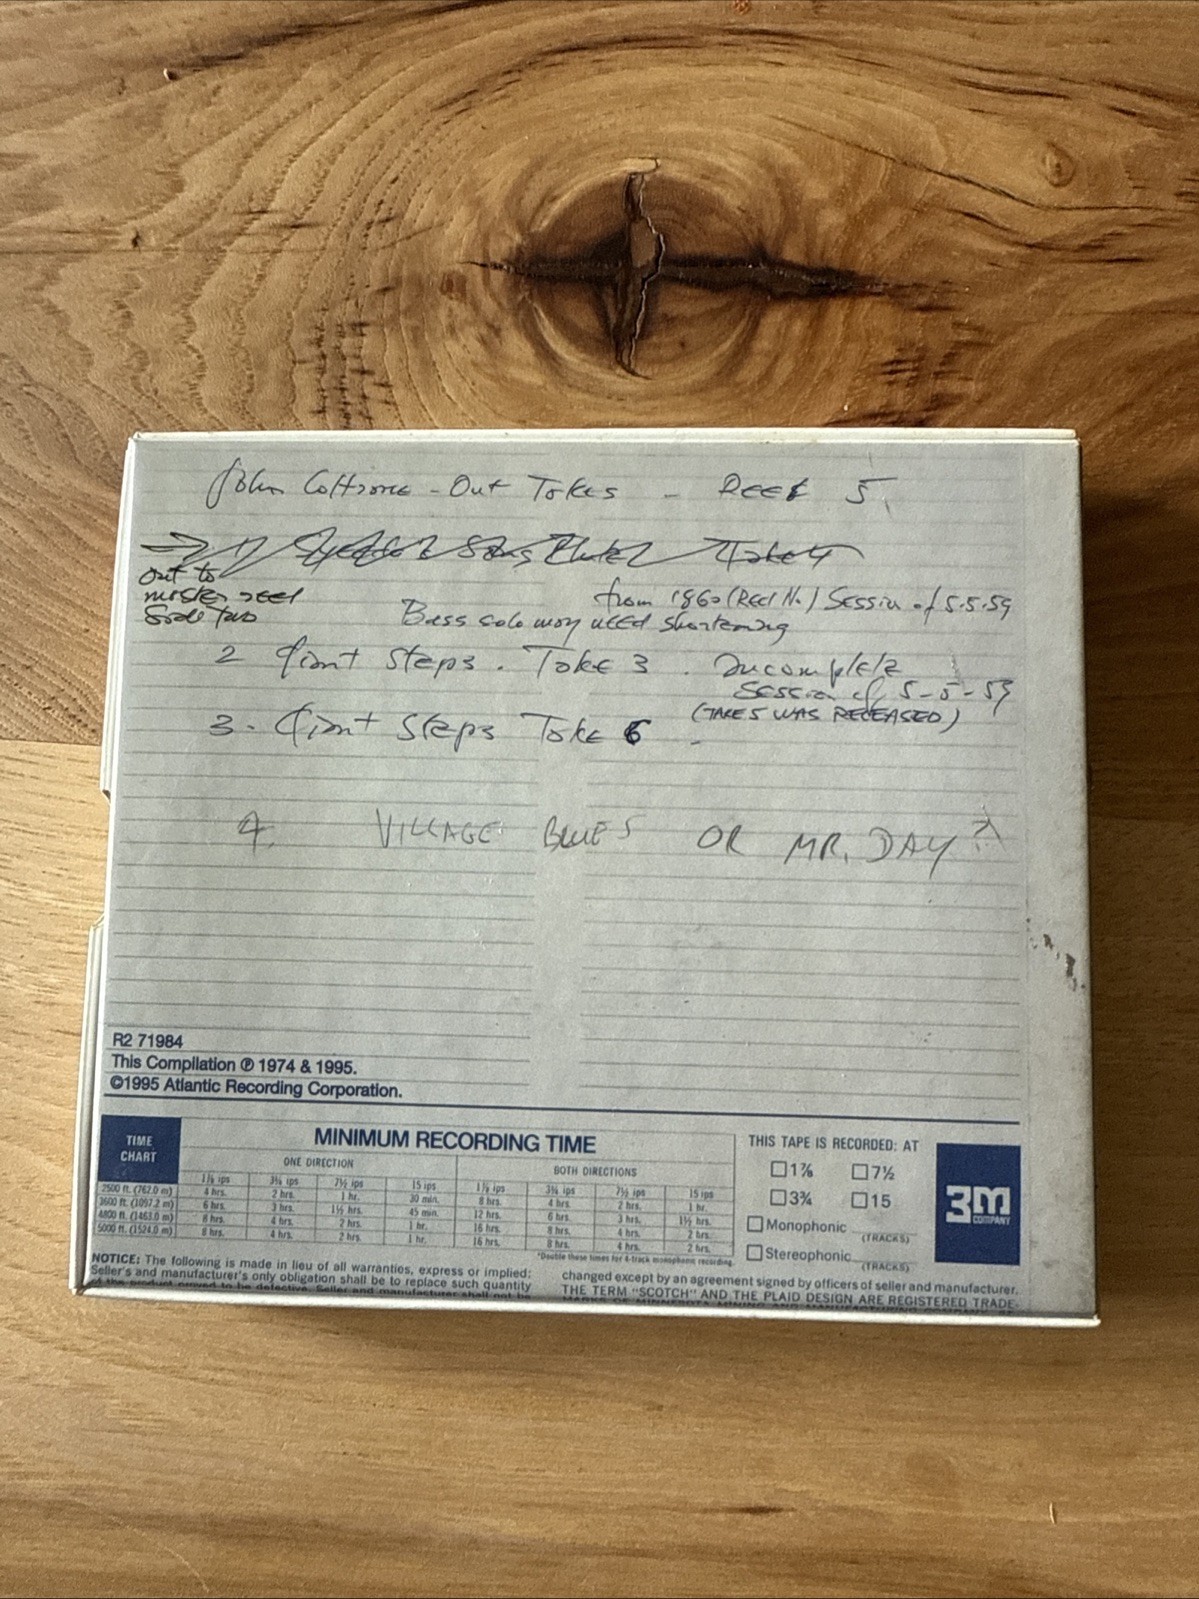 John Coltrane - Out Takes - Reel 5
1) Take 4
out to
master reel
Side two
from 1860 (Reel No.) Session of 5.5.59
Bass solo may need shortening
2 Giant Steps. Take 3. Incomplete
Session of 5-5-59
(TAKE 5 WAS RELEASED)
3. Giant Steps Take 6
4. VILLAGE BLUES OR MR. DAY?
R2 71984
This Compilation ℗ 1974 & 1995.
©1995 Atlantic Recording Corporation.
TIME CHART
MINIMUM RECORDING TIME
ONE DIRECTION BOTH DIRECTIONS
1⅞ ips 3¾ ips 7½ ips 15 ips 1⅞ ips 3¾ ips 7½ ips 15 ips
2500 ft. (762.0 m) 4 hrs. 2 hrs. 1 hr. 30 min. 8 hrs. 4 hrs. 2 hrs. 1 hr.
3600 ft. (1097.2 m) 6 hrs. 3 hrs. 1½ hrs. 45 min. 12 hrs. 6 hrs. 3 hrs. 1½ hrs.
4800 ft. (1463.0 m) 8 hrs. 4 hrs. 2 hrs. 1 hr. 16 hrs. 8 hrs. 4 hrs. 2 hrs.
5000 ft. (1524.0 m) 8 hrs. 4 hrs. 2 hrs. 1 hr. 16 hrs. 8 hrs. 4 hrs. 2 hrs.
*Double these times for 4-track monophonic recording.
THIS TAPE IS RECORDED: AT
☐ 1⅞ ☐ 7½
☐ 3¾ ☐ 15
☐ Monophonic
(TRACKS)
☐ Stereophonic
(TRACKS)
3M
COMPANY
NOTICE: The following is made in lieu of all warranties, express or implied:
Seller's and manufacturer's only obligation shall be to replace such quantity
of the product proved to be defective. Seller and manufacturer shall not be
changed except by an agreement signed by officers of seller and manufacturer.
THE TERM "SCOTCH" AND THE PLAID DESIGN ARE REGISTERED TRADE-
MARKS OF MINNESOTA MINING AND MANUFACTURING COMPANY